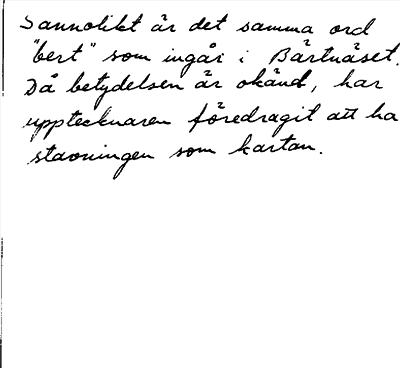 Sannolikt är det samma ord
"bert" som ingår i Bärtnäset.
Då betydelsen är okänd, har
upptecknaren föredragit att ha
stavningen som kartan.